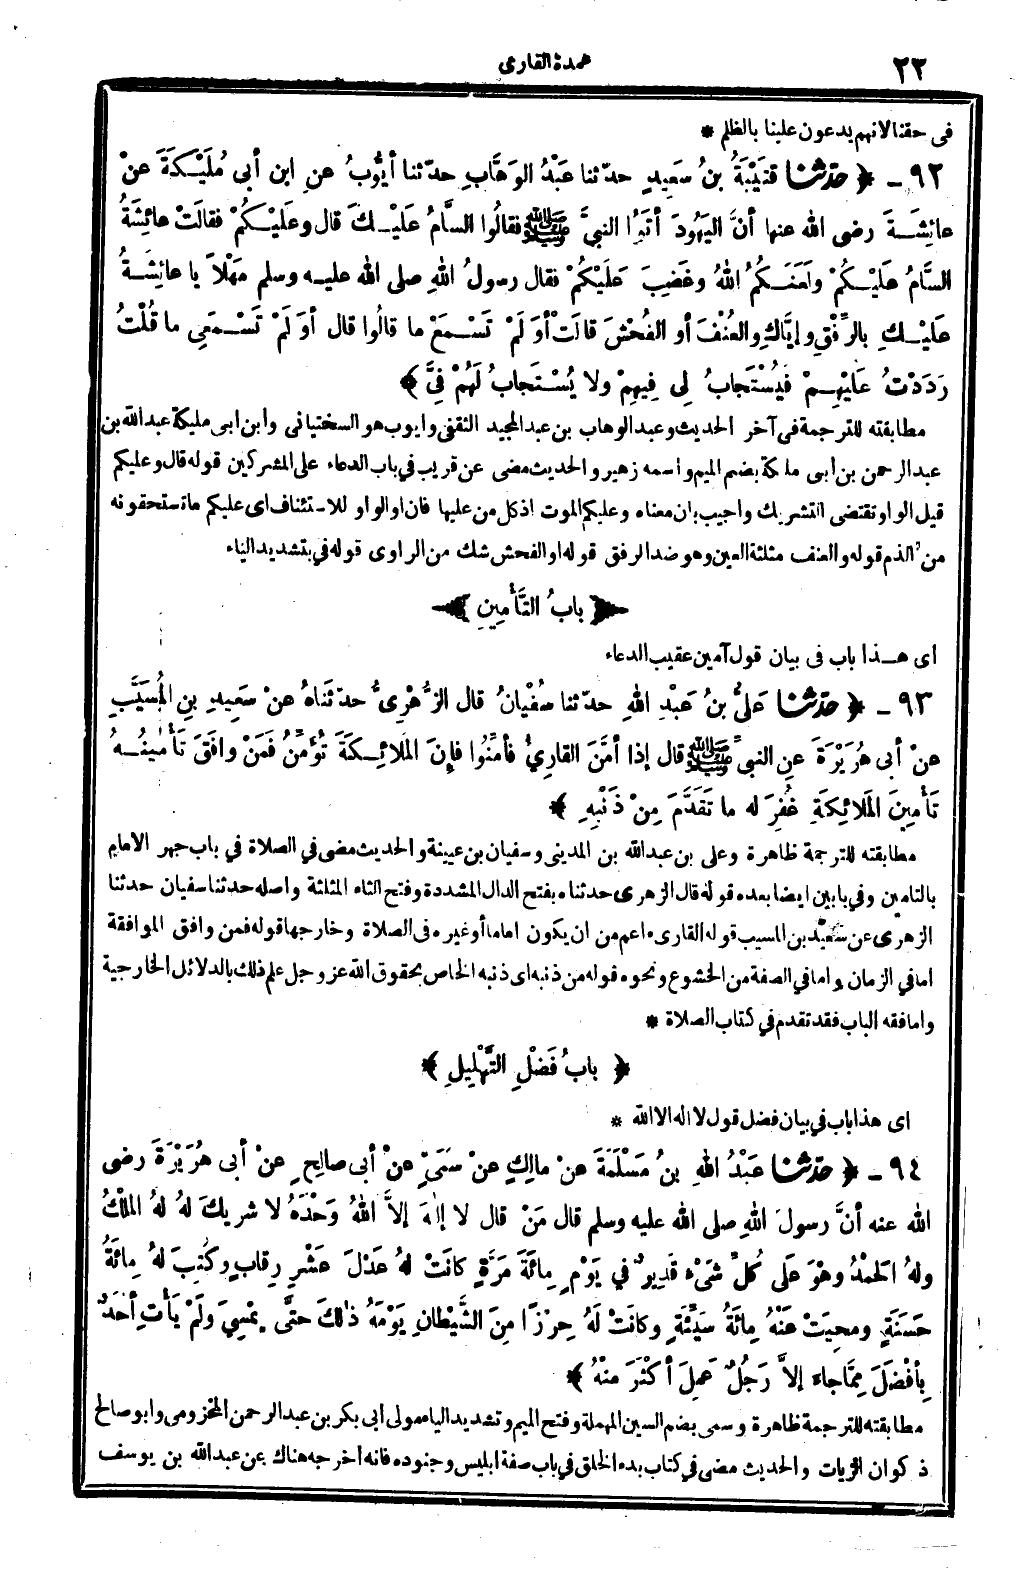 ٢٢
عمدة القارى
فى حقنا لانهم يدعون علينا بالظلم *
٩٢ ـ ﴿ حدثنا قُتَيْبَةُ بنُ سَعِيدٍ حدثنا عَبْدُ الوَهَّابِ حدثنا أيُّوبُ عنِ ابنِ أبى مُلَيْكَةَ عنْ
عائِشَةَ رضى الله عنها أنَّ اليَهُودَ أتَوُا النبيَّ ﷺ فقالُوا السَّامُ عَلَيْكَ قال وعَلَيْكُمْ فقالَتْ عائِشَةُ
السَّامُ عَلَيْكُمْ ولَعَنَكُمُ اللهُ وغَضِبَ عَلَيْكُمْ فقال رسولُ اللهِ صلى الله عليه وسلم مَهْلاً يا عائِشَةُ
عَلَيْكِ بالرِّفْقِ وإيَّاكِ والعُنْفَ أو الفُحْشَ قالَتْ أوَ لَمْ تَسْمَعْ ما قالُوا قال أوَ لَمْ تَسْمَعِى ما قُلْتُ
رَدَدْتُ عَلَيْهِمْ فَيُسْتَجابُ لِى فِيهِمْ ولا يُسْتَجابُ لَهُمْ فِىَّ ﴾
مطابقته للترجمة فى آخر الحديث وعبد الوهاب بن عبد المجيد الثقفى وايوب هو السختيانى وابن ابى مليكة عبد الله بن
عبد الرحمن بن أبى ملكة بضم الميم واسمه زهير والحديث مضى عن قريب في باب الدعاء على المشركين قوله قال وعليكم
قيل الواو تقتضى التشريك واجيب بان معناه وعليكم الموت اذ كل من عليها فان او الواو للاستئناف اى عليكم ما تستحقونه
من الذم قوله والعنف مثلثة العين وهو ضد الرفق قوله او الفحش شك من الراوى قوله في بتشديد الياء
﴿ بابُ التَّأْمِينِ ﴾
اى هذا باب فى بيان قول آمين عقيب الدعاء
٩٣ ـ ﴿ حدثنا عَلِىُّ بنُ عَبْدِ اللهِ حدثنا سُفْيانُ قال الزُّهْرِىُّ حدثَناهُ عنْ سَعِيدِ بنِ المُسَيَّبِ
عنْ أبى هُرَيْرَةَ عنِ النبىِّ ﷺ قال إذا أمَّنَ القارِئُ فأمِّنُوا فإنَّ المَلائِكَةَ تُؤَمِّنُ فَمَنْ وافَقَ تَأْمِينُهُ
تَأْمِينَ المَلائِكَةِ غُفِرَ له ما تَقَدَّمَ مِنْ ذَنْبِهِ ﴾
مطابقته للترجمة ظاهرة وعلى بن عبد الله بن المدينى وسفيان بن عيينة والحديث مضى في الصلاة في باب جهر الامام
بالتامين وفي بابين ايضا بعده قوله قال الزهرى حدثناه بفتح الدال المشددة وفتح الثاء المثلثة واصله حدثنا سفيان حدثنا
الزهرى عن سعيد بن المسيب قوله القارىء اعم من ان يكون اماما أو غيره فى الصلاة وخارجها قوله فمن وافق الموافقة
اما في الزمان واما في الصفة من الخشوع ونحوه قوله من ذنبه اى ذنبه الخاص بحقوق الله عز وجل علم ذلك بالدلائل الخارجية
واما فقه الباب فقد تقدم في كتاب الصلاة *
﴿ بابُ فَضْلِ التَّهْلِيلِ ﴾
اى هذا باب في بيان فضل قول لا اله الا الله *
٩٤ ـ ﴿ حدثنا عَبْدُ اللهِ بنُ مَسْلَمَةَ عنْ مالِكٍ عنْ سُمَىّ عنْ أبى صالِحٍ عنْ أبى هُرَيْرَةَ رضى
الله عنه أنَّ رسولَ اللهِ صلى الله عليه وسلم قال مَنْ قال لا إلٰهَ إلاَّ اللهُ وَحْدَهُ لا شَرِيكَ لهُ لهُ المُلْكُ
ولهُ الحَمْدُ وهْوَ عَلَى كُلِّ شَىْءٍ قَدِيرٌ في يَوْمٍ مِائَةَ مَرَّةٍ كانَتْ لهُ عَدْلَ عَشْرِ رِقابٍ وكُتِبَ لهُ مِائَةُ
حَسَنَةٍ ومحِيَتْ عَنْهُ مِائَةُ سَيِّئَةٍ وكانَتْ لَهُ حِرْزًا مِنَ الشَّيْطانِ يَوْمَهُ ذٰلِكَ حتَّى يُمْسِىَ ولَمْ يَأْتِ أحَدٌ
بِأفْضَلَ مِمَّا جاء إلاَّ رَجُلٌ عَمِلَ أكْثَرَ مِنْهُ ﴾
مطابقته للترجمة ظاهرة وسمى بضم السين المهملة وفتح الميم وتشديد الياء مولى ابى بكر بن عبد الرحمن المخزومى وابو صالح
ذكوان الزيات والحديث مضى في كتاب بدء الخلق في باب صفة ابليس وجنوده فانه أخرجه هناك عن عبد الله بن يوسف